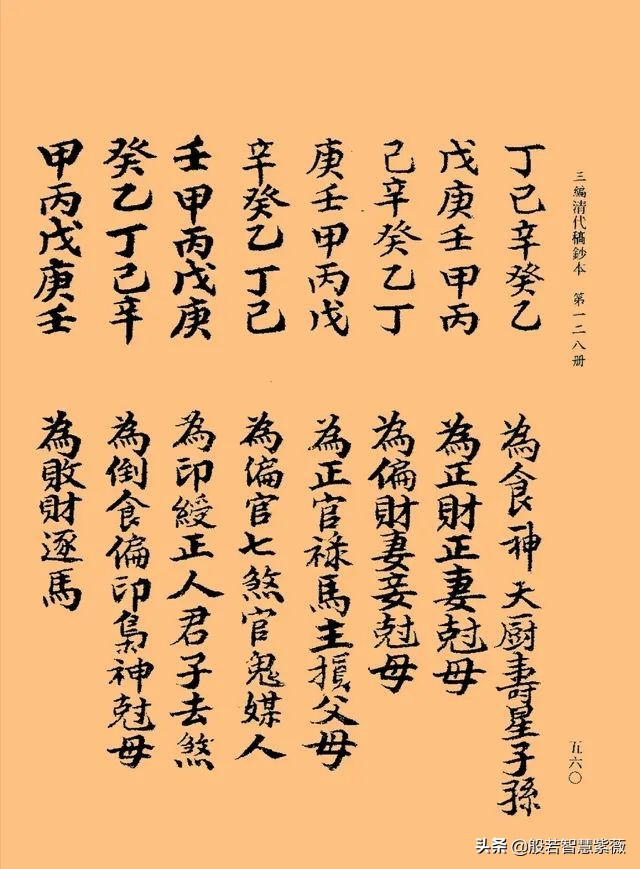 三編清代稿鈔本 第一二八册
丁己辛癸乙 為食神天厨壽星子孫
戊庚壬甲丙 為正財正妻尅母
己辛癸乙丁 為偏財妻妾尅母
庚壬甲丙戊 為正官禄馬主損父母
辛癸乙丁己 為偏官七煞官鬼媒人
壬甲丙戊庚 為印綬正人君子去煞
癸乙丁己辛 為倒食偏印梟神尅母
甲丙戊庚壬 為敗財逐馬
五六〇
头条 @般若智慧紫薇